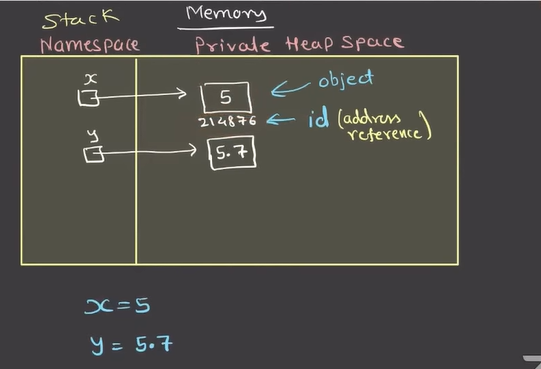 Stack Memory
Namespace Private Heap Space
x 5 object
214876 id (address reference)
y 5.7
x = 5
y = 5.7